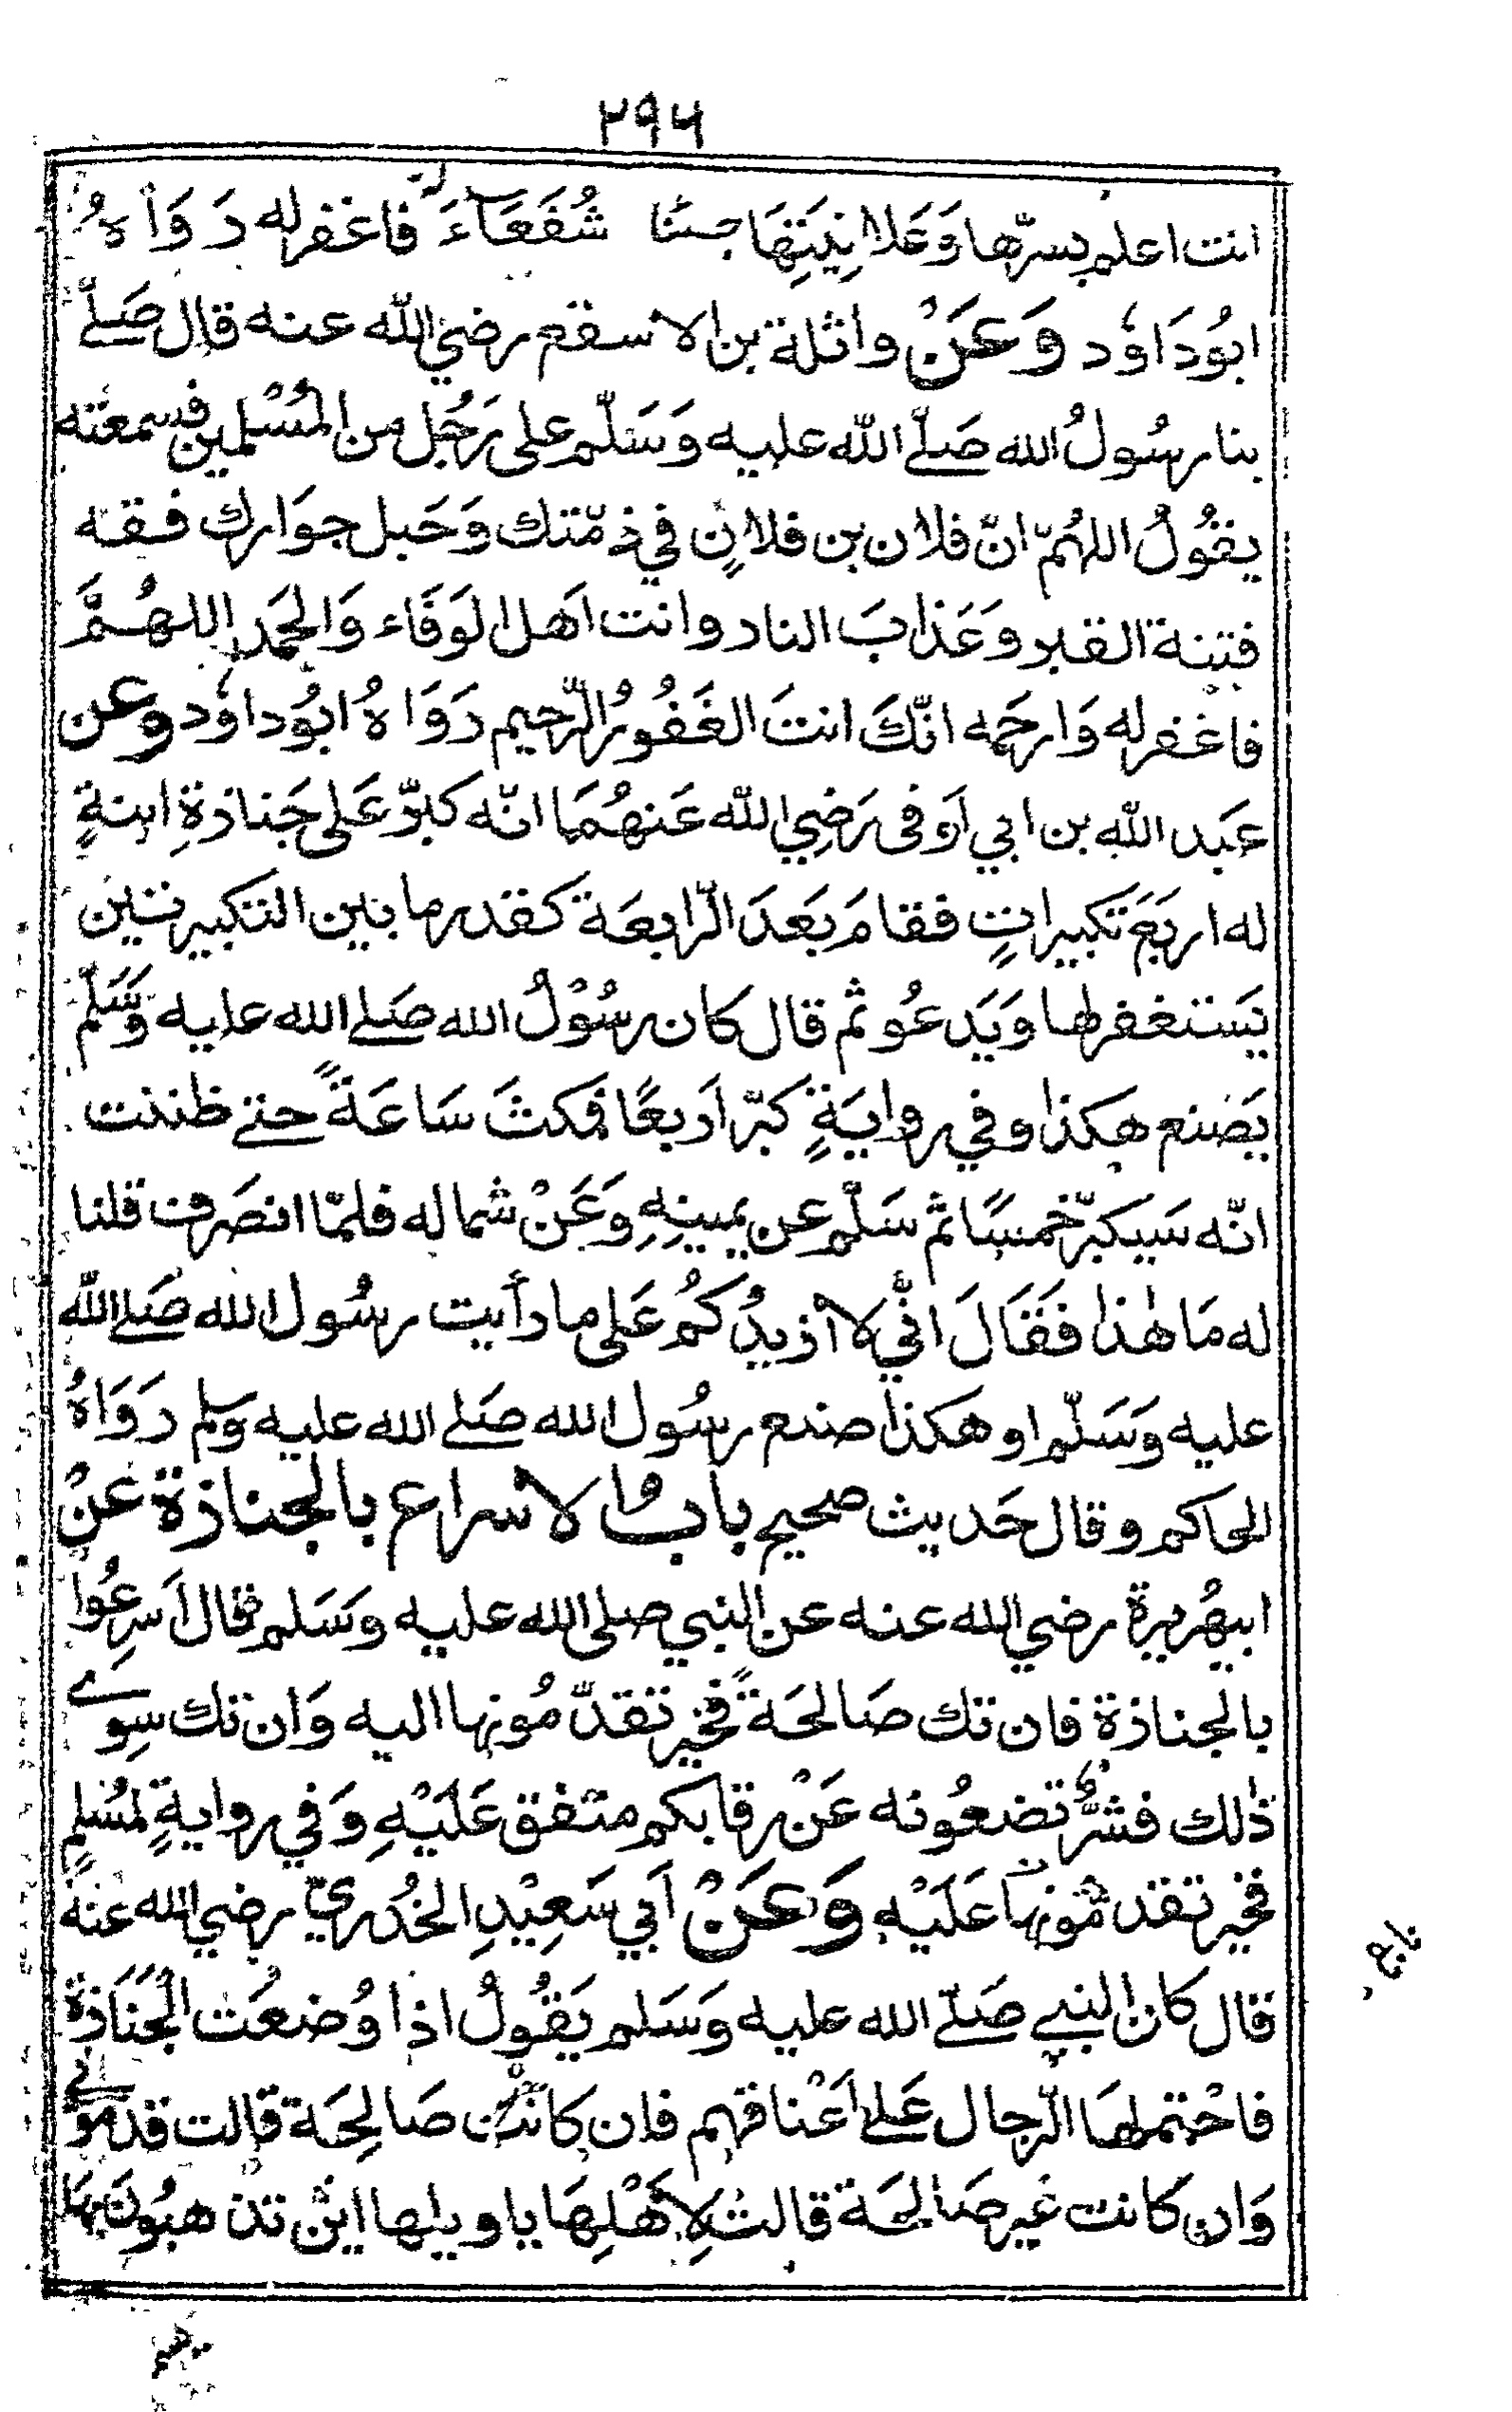 ۲۹۶
انت اعلم بسرّها وَعَلانِيَتِهَا جئنا شُفَعَآءَ فاغفر له رَوَاهُ
ابُودَاوٗد وَعَنْ واثلة بن الاسقع رضي الله عنه قال صَلّے
بنا رسُولُ الله صَلّے الله عليه وَسَلّم على رَجُل من المُسْلمين فسمعته
يقُولُ اللهُمّ انّ فلان بن فلانٍ في ذمّتك وَحَبل جوَارك فقه
فتنة القبر وَعَذابَ النار وانت اَهل الوَفَاء وَالحمَد اللهُمَّ
فاغفر له وَارحَمه انّكَ انتَ الغَفُورُ الرّحيم رَوَاهُ ابُوداوٗد وعن
عَبَد الله بن ابي اَوفى رَضِي الله عَنهُمَا انّه كبرّ عَلى جَنازةِ ابنةٍ
له اربَعَ تكبيراتٍ فقامَ بَعَدَ الرّابعَة كقدر ما بين التكبيرتين
يَستغفر لها وَيَدعُو ثم قال كان رسُوْلُ الله صَلے الله عليه وَسَلّم
يَصنع هكذا وفي روايَةٍ كبرّ اَربعًا فمكثَ سَاعَةً حتے ظننت
انّه سَيكبرّ خمسًا ثم سَلّم عن يمينِهِ وَعَنْ شماله فلمّا انصَرف قلنا
له مَا هٰذا فَقَالَ انّي لا اَزيدُكُم عَلى ما رأيت رسُول الله صَلے الله
عليه وَسَلّم او هكذا صنع رسُول الله صَلے الله عليه وسلم رَوَاهُ
الحاكم وقال حَديث صحيح بابُ الاسراع بالجنازة عَنْ
ابيهُريرة رضي الله عنه عن النبي صلى الله عليه وسَلم قال اَسرِعُوا
بالجنازة فان تك صَالحَةً فخير تقدّمُونها اليه وَان تك سِوے
ذٰلك فشرٌّ تضعُونه عَنْ رقابكم متفق عَلَيْهِ وَفي روايةٍ لمُسْلمٍ
فخير تقدمُّونها عَلَيْه وَعَنْ اَبي سَعِيْدِ الخُدريّ رضي الله عنهُ
قال كان النبے صَلّے الله عليه وَسَلم يَقُولُ اذا وُضعَت الجَنَازة
فاحْتملهَا الرّجال عَلے اَعْناقهم فان كانت صَالِحَة قالت قدموُنے
وَان كانت غير صَالحَة قالتْ لِاَهْلِهَا يا ويلها ايْن تذهبُونَ بهَا